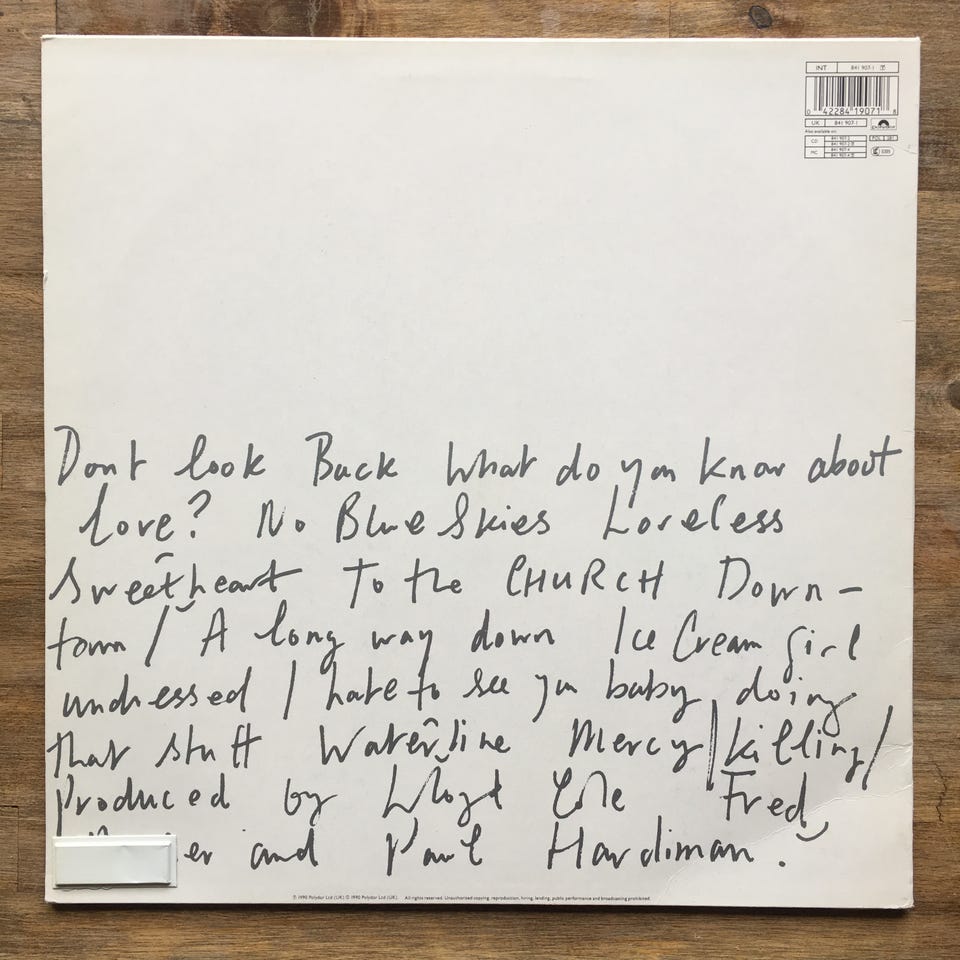 INT 841 907-1
0 42284 19071 8
UK 841 907-1
Also available on:
CD 841 907-2
MC 841 907-4
POL 281
Dont look Back What do you know about
love? No Blue Skies Loveless
Sweetheart To the CHURCH Down-
town / A long way down Ice Cream girl
undressed I hate to see you baby doing
that stuff Waterline Mercy/killing/
Produced by Lloyd Cole Fred
er and Paul Hardiman.
℗ 1990 Polydor Ltd (UK) © 1990 Polydor Ltd (UK) All rights reserved. Unauthorised copying, reproduction, hiring, lending, public performance and broadcasting prohibited.